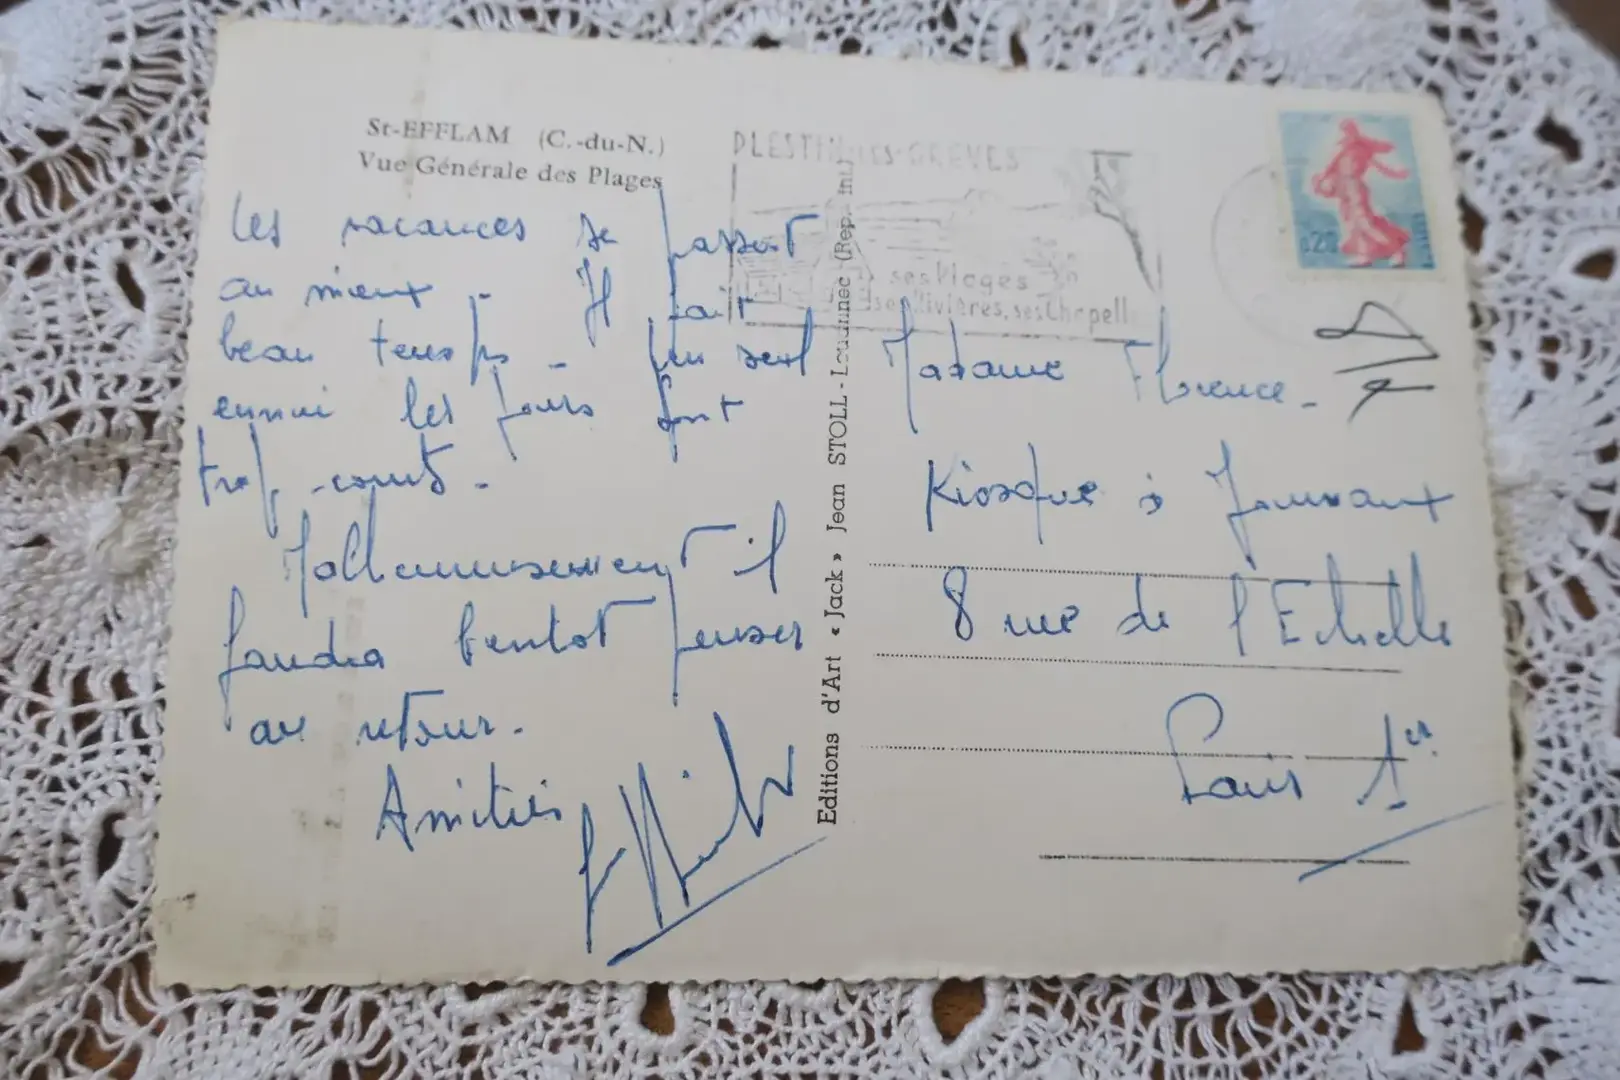 St-EFFLAM (C.-du-N.)
Vue Générale des Plages
Les vacances se passent
au mieux - Il fait
beau temps - Un seul
ennui les jours sont
trop courts -
Malheureusement il
faudra bientot penser
au retour -
Amitiés
Editions d'Art « Jack » Jean STOLL - Louannec (Rep. Int
PLESTIN-LES-GREVES
ses Plages
ses Rivières, ses Chapell
0,20
Madame Florence -
Kiosque à Journaux
8 rue de l'Echelle
Paris 1er